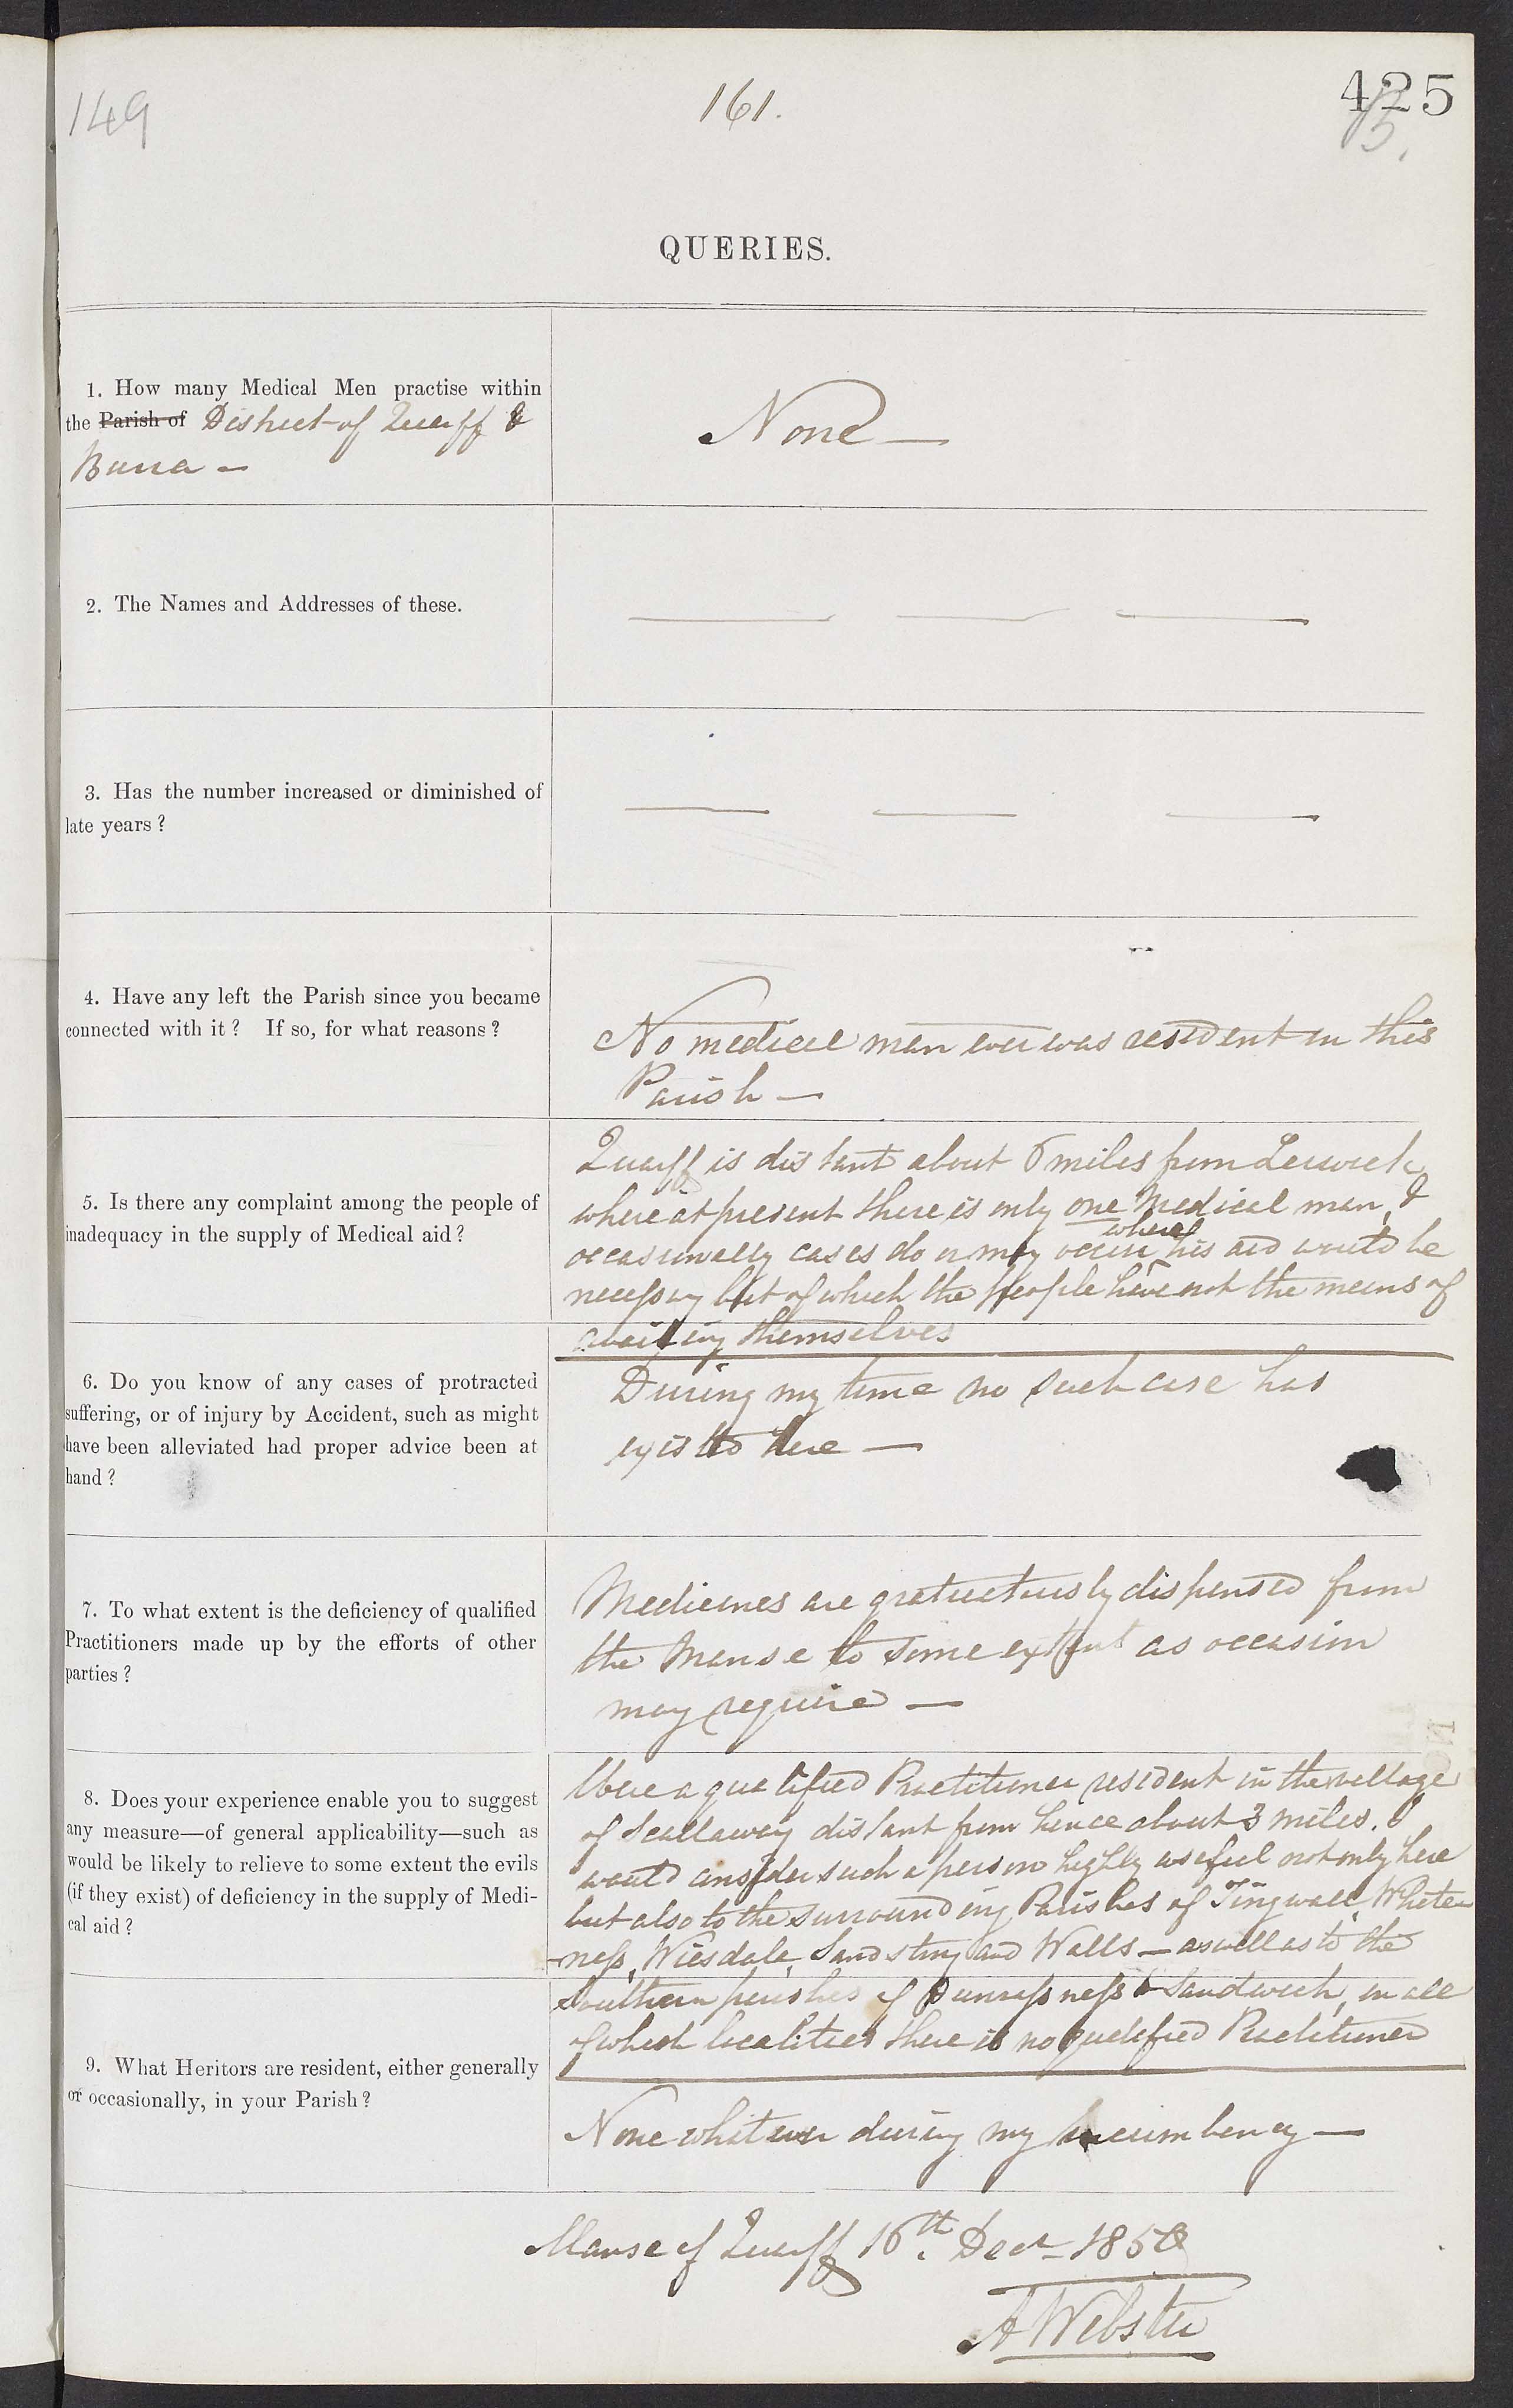 149
161.
425
15.
QUERIES.
1. How many Medical Men practise within
the Parish of District of Quarff &
Burra —
None —
2. The Names and Addresses of these.
3. Has the number increased or diminished of
late years ?
4. Have any left the Parish since you became
connected with it ? If so, for what reasons ?
No medical man ever was resident in this
Parish —
5. Is there any complaint among the people of
inadequacy in the supply of Medical aid ?
Quarff is distant about 6 miles from Lerwick
where at present there is only one Medical man, &
where
occasionally cases do or may occur his aid would be
necessary but of which the people have not the means of
availing themselves
6. Do you know of any cases of protracted
suffering, or of injury by Accident, such as might
have been alleviated had proper advice been at
hand ?
During my time no such case has
existed here —
7. To what extent is the deficiency of qualified
Practitioners made up by the efforts of other
parties ?
Medicines are gratuitously dispensed from
the Manse to some extent as occasion
may require —
8. Does your experience enable you to suggest
any measure—of general applicability—such as
would be likely to relieve to some extent the evils
(if they exist) of deficiency in the supply of Medi-
cal aid ?
Were a qualified Practitioner resident in the village
of Scallaway distant from hence about 3 miles. I
would consider such a person highly useful not only here
but also to the surrounding Parishes of Tingwall, White-
-ness, Wiesdale, Sandsting and Walls — as well as to the
Southern parishes of Dunrossness & Sandwick, in all
of which localities there is no qualified Practitioner
9. What Heritors are resident, either generally
or occasionally, in your Parish ?
None whatever during my incumbency —
Manse of Quarff 16th. Decr. 1850
A Webster